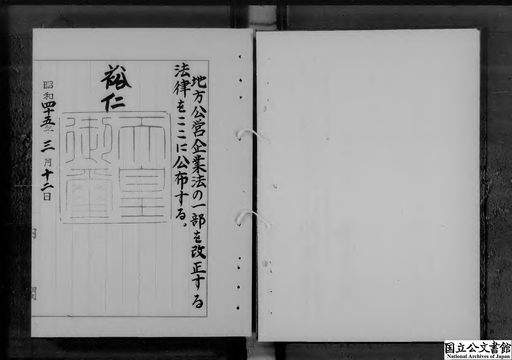 地方公営企業法の一部を改正する
法律をここに公布する。
裕仁
天皇御璽
昭和四十五年三月十二日
国立公文書館
National Archives of Japan